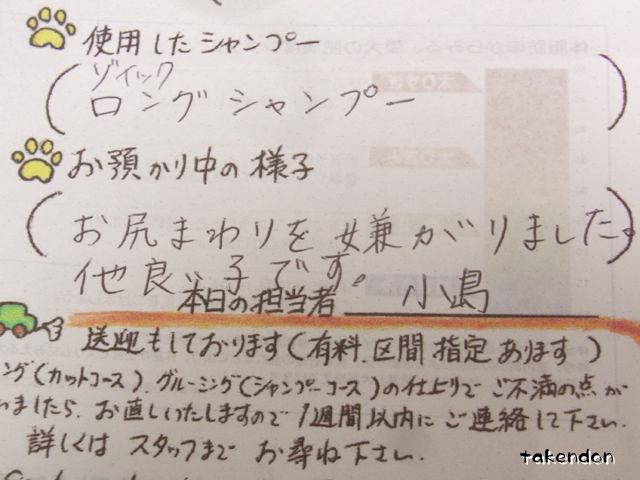 使用したシャンプー
ゾイック
ロングシャンプー
お預かり中の様子
お尻まわりを嫌がりました。
他良い子です。
本日の担当者 小島
送迎もしております(有料、区間指定あります)
ング(カットコース)、グルーミング(シャンプーコース)の仕上りでご不満の点が
いましたら、お直しいたしますので1週間以内にご連絡して下さい。
詳しくはスタッフまでお尋ね下さい。
takendon